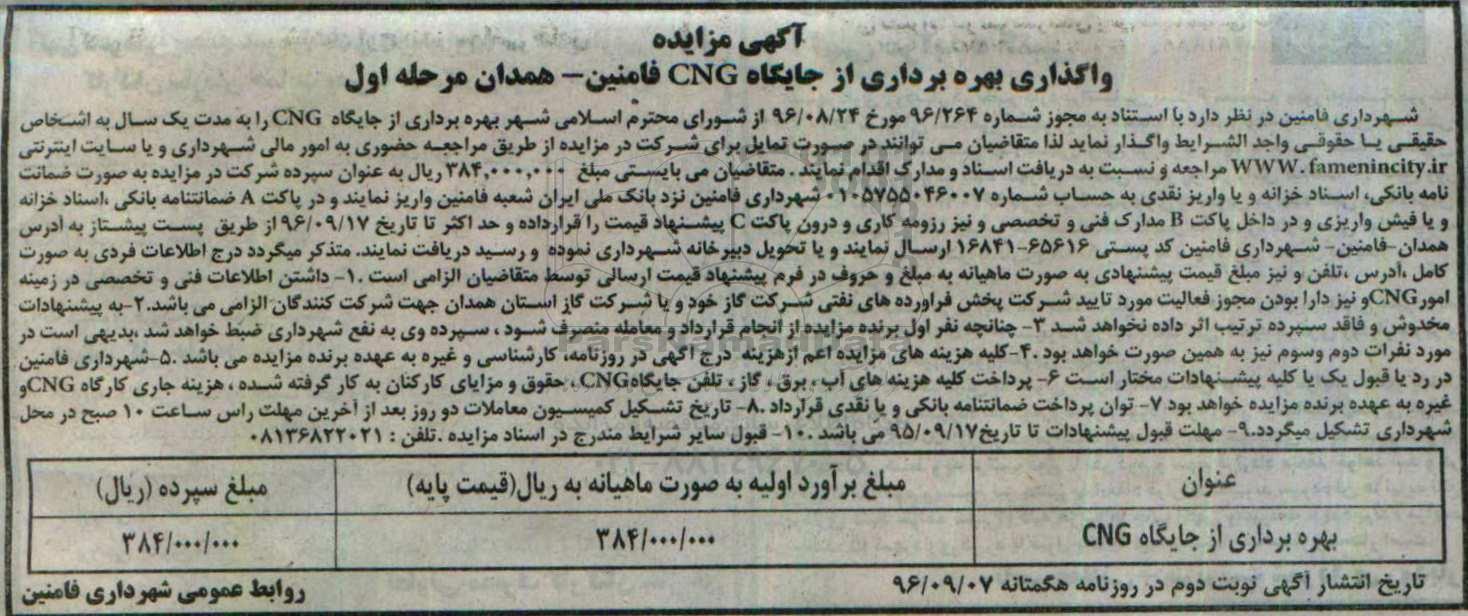 آگهی مزایده
واگذاری بهره برداری از جایگاه CNG فامنین- همدان مرحله اول
شهرداری فامنین در نظر دارد با استناد به مجوز شماره ۹۶/۲۶۴ مورخ ۹۶/۰۸/۲۴ از شورای محترم اسلامی شهر بهره برداری از جایگاه CNG را به مدت یک سال به اشخاص
حقیقی یا حقوقی واجد الشرایط واگذار نماید لذا متقاضیان می توانند در صورت تمایل برای شرکت در مزایده از طریق مراجعه حضوری به امور مالی شهرداری و یا سایت اینترنتی
WWW.famenincity.ir مراجعه و نسبت به دریافت اسناد و مدارک اقدام نمایند . متقاضیان می بایستی مبلغ ۳۸۴,۰۰۰,۰۰۰ ریال به عنوان سپرده شرکت در مزایده به صورت ضمانت
نامه بانکی، اسناد خزانه و یا واریز نقدی به حساب شماره ۰۱۰۵۷۵۵۰۴۶۰۰۷ شهرداری فامنین نزد بانک ملی ایران شعبه فامنین واریز نمایند و در پاکت A ضمانتنامه بانکی ،اسناد خزانه
و یا فیش واریزی و در داخل پاکت B مدارک فنی و تخصصی و نیز رزومه کاری و درون پاکت C پیشنهاد قیمت را قرارداده و حد اکثر تا تاریخ ۹۶/۰۹/۱۷ از طریق پست پیشتاز به آدرس
همدان-فامنین- شهرداری فامنین کد پستی ۶۵۶۱۶-۱۶۸۴۱ ارسال نمایند و یا تحویل دبیرخانه شهرداری نموده و رسید دریافت نمایند. متذکر میگردد درج اطلاعات فردی به صورت
کامل ،آدرس ،تلفن و نیز مبلغ قیمت پیشنهادی به صورت ماهیانه به مبلغ و حروف در فرم پیشنهاد قیمت ارسالی توسط متقاضیان الزامی است .۱- داشتن اطلاعات فنی و تخصصی در زمینه
امورCNG و نیز دارا بودن مجوز فعالیت مورد تایید شرکت پخش فراورده های نفتی شرکت گاز خود و یا شرکت گاز استان همدان جهت شرکت کنندگان الزامی می باشد.۲-به پیشنهادات
مخدوش و فاقد سپرده ترتیب اثر داده نخواهد شد ۳- چنانچه نفر اول برنده مزایده از انجام قرارداد و معامله منصرف شود ، سپرده وی به نفع شهرداری ضبط خواهد شد ،بدیهی است در
مورد نفرات دوم وسوم نیز به همین صورت خواهد بود .۴-کلیه هزینه های مزایده اعم ازهزینه درج آگهی در روزنامه، کارشناسی و غیره به عهده برنده مزایده می باشد .۵-شهرداری فامنین
در رد یا قبول یک یا کلیه پیشنهادات مختار است ۶- پرداخت کلیه هزینه های آب ، برق ، گاز ، تلفن جایگاهCNG ، حقوق و مزایای کارکنان به کار گرفته شده ، هزینه جاری کارگاه CNGو
غیره به عهده برنده مزایده خواهد بود ۷- توان پرداخت ضمانتنامه بانکی و یا نقدی قرارداد .۸- تاریخ تشکیل کمیسیون معاملات دو روز بعد از آخرین مهلت راس ساعت ۱۰ صبح در محل
شهرداری تشکیل میگردد.۹- مهلت قبول پیشنهادات تا تاریخ۹۵/۰۹/۱۷ می باشد .۱۰- قبول سایر شرایط مندرج در اسناد مزایده .تلفن : ۰۸۱۳۶۸۲۲۰۲۱
عنوان مبلغ برآورد اولیه به صورت ماهیانه به ریال(قیمت پایه) مبلغ سپرده (ریال)
بهره برداری از جایگاه CNG ۳۸۴/۰۰۰/۰۰۰ ۳۸۴/۰۰۰/۰۰۰
تاریخ انتشار آگهی نوبت دوم در روزنامه هگمتانه ۹۶/۰۹/۰۷ روابط عمومی شهرداری فامنین